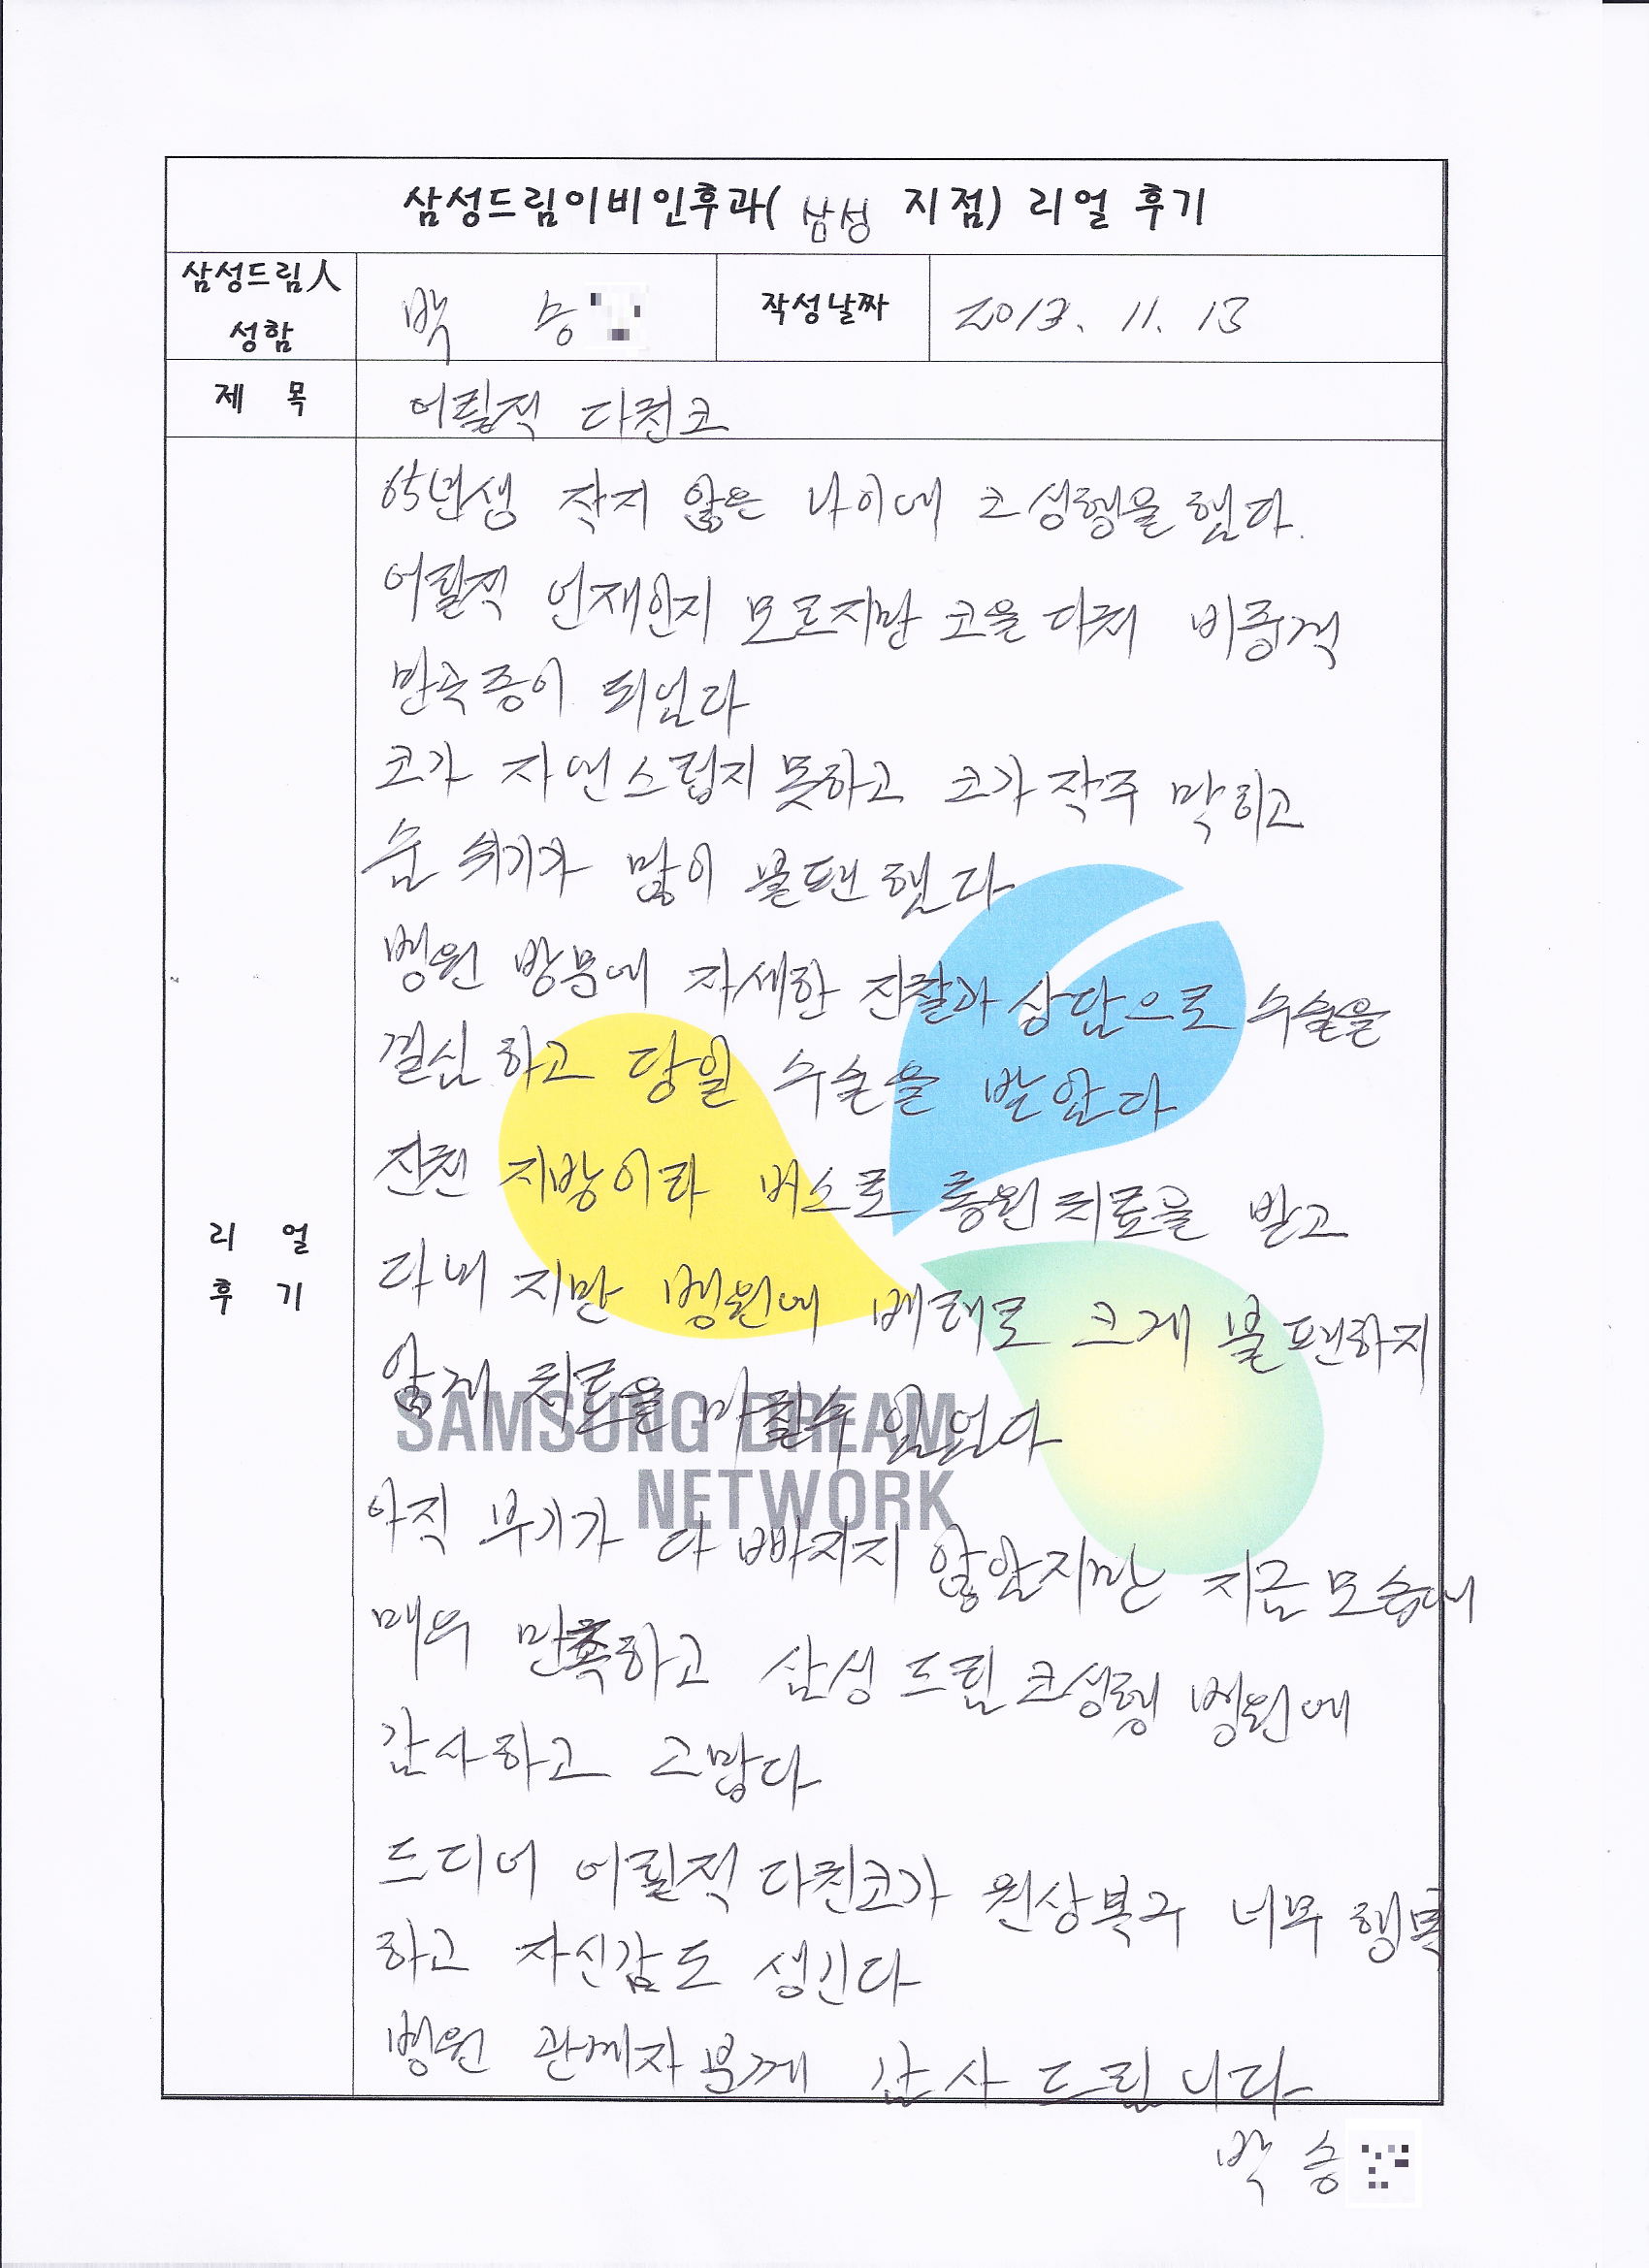 삼성드림이비인후과( 삼성 지점) 리얼 후기
삼성드림人
성함
박 승
작성날짜
2013. 11. 13
제 목
어릴적 다친코
65년생 작지 않은 나이에 코 성형을 했다.
어릴적 언재인지 모르지만 코을 다쳐 비중격
만곡증이 되었다
코가 자연스럽지 못하고 코가 자주 막히고
숨 쉬기가 많이 불편 했다
병원 방문에 자세한 진찰과 상담으로 수술을
결심 하고 당일 수술을 받았다
진천 지방이라 버스로 통원 치료을 받고
다녀 지만 병원에 배려로 크게 불편하지
않게 치료을 마칠수 있었다
SAMSUNG DREAM
NETWORK
아직 부기가 다 빠지지 않았지만 지금 모습에
매우 만족하고 삼성 드림 코성형 병원에
감사하고 고맙다
리 얼
후 기
드디어 어릴적 다친코가 원상복구 너무 행복
하고 자신감도 생긴다
병원 관계자 분께 감사 드립니다
박 승